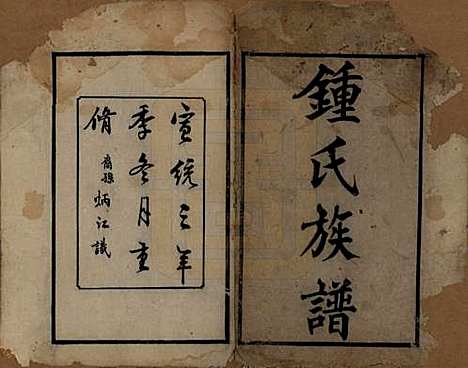 鍾氏族譜
宣統三年
季冬月重
脩 裔孫炳江識